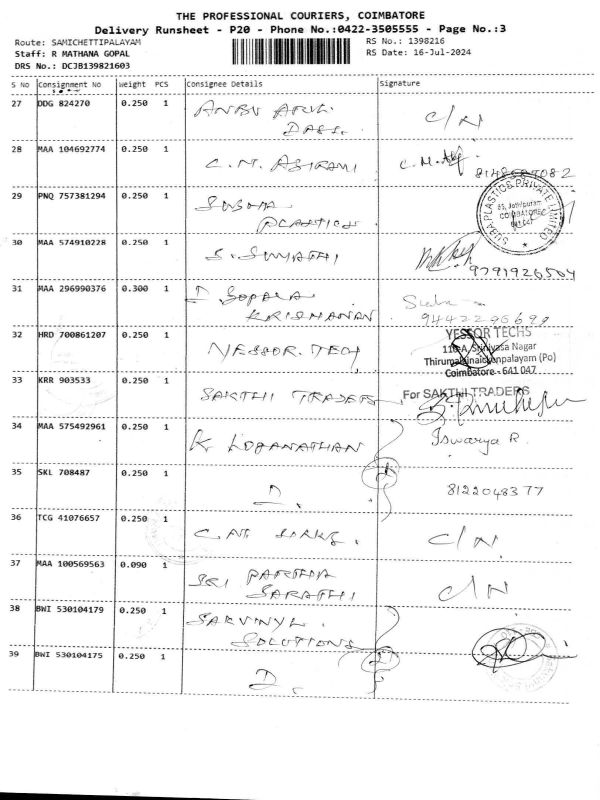 THE PROFESSIONAL COURIERS, COIMBATORE
Delivery Runsheet - P20 - Phone No.:0422-3505555 - Page No.:3
Route: SAMICHETTIPALAYAM
RS No.: 1398216
Staff: R MATHANA GOPAL
RS Date: 16-Jul-2024
DRS No.: DCJB139821603
S No Consignment No Weight PCS Consignee Details Signature
27 DDG 824270 0.250 1 ANBU ARUL
DASS. C/N
28 MAA 104692774 0.250 1 C.M. ASIRAMI C.M.
29 PNQ 757381294 0.250 1
PLASTICS
SUBA PLASTICS PRIVATE LIMITED
COIMBATORE
641 047
30 MAA 574910228 0.250 1 S. SWATHI
9791926504
31 MAA 296990376 0.300 1 I. GOPALA
KRISHANAN
32 HRD 700861207 0.250 1 YESSOR. TECH,
YESSOR TECHS
110-A, Srinivasa Nagar
Coimbatore - 641 047
33 KRR 903533 0.250 1 SAKTHI TRADERS
For SAKTHI TRADERS
34 MAA 575492961 0.250 1 K LOGANATHAN Iswarya R.
35 SKL 708487 0.250 1 D. 8122048377
36 TCG 41076657 0.250 1 C/N
37 MAA 100569563 0.090 1 SRI PARTHA
SARATHI C/N
38 BWI 530104179 0.250 1 SARVINYL
SOLUTIONS
39 BWI 530104175 0.250 1 D.